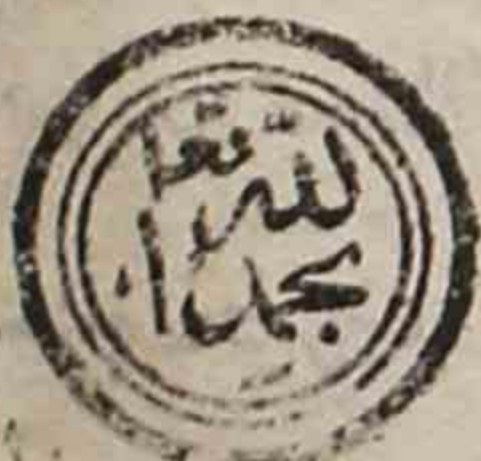 بحمد ا
لله تعا